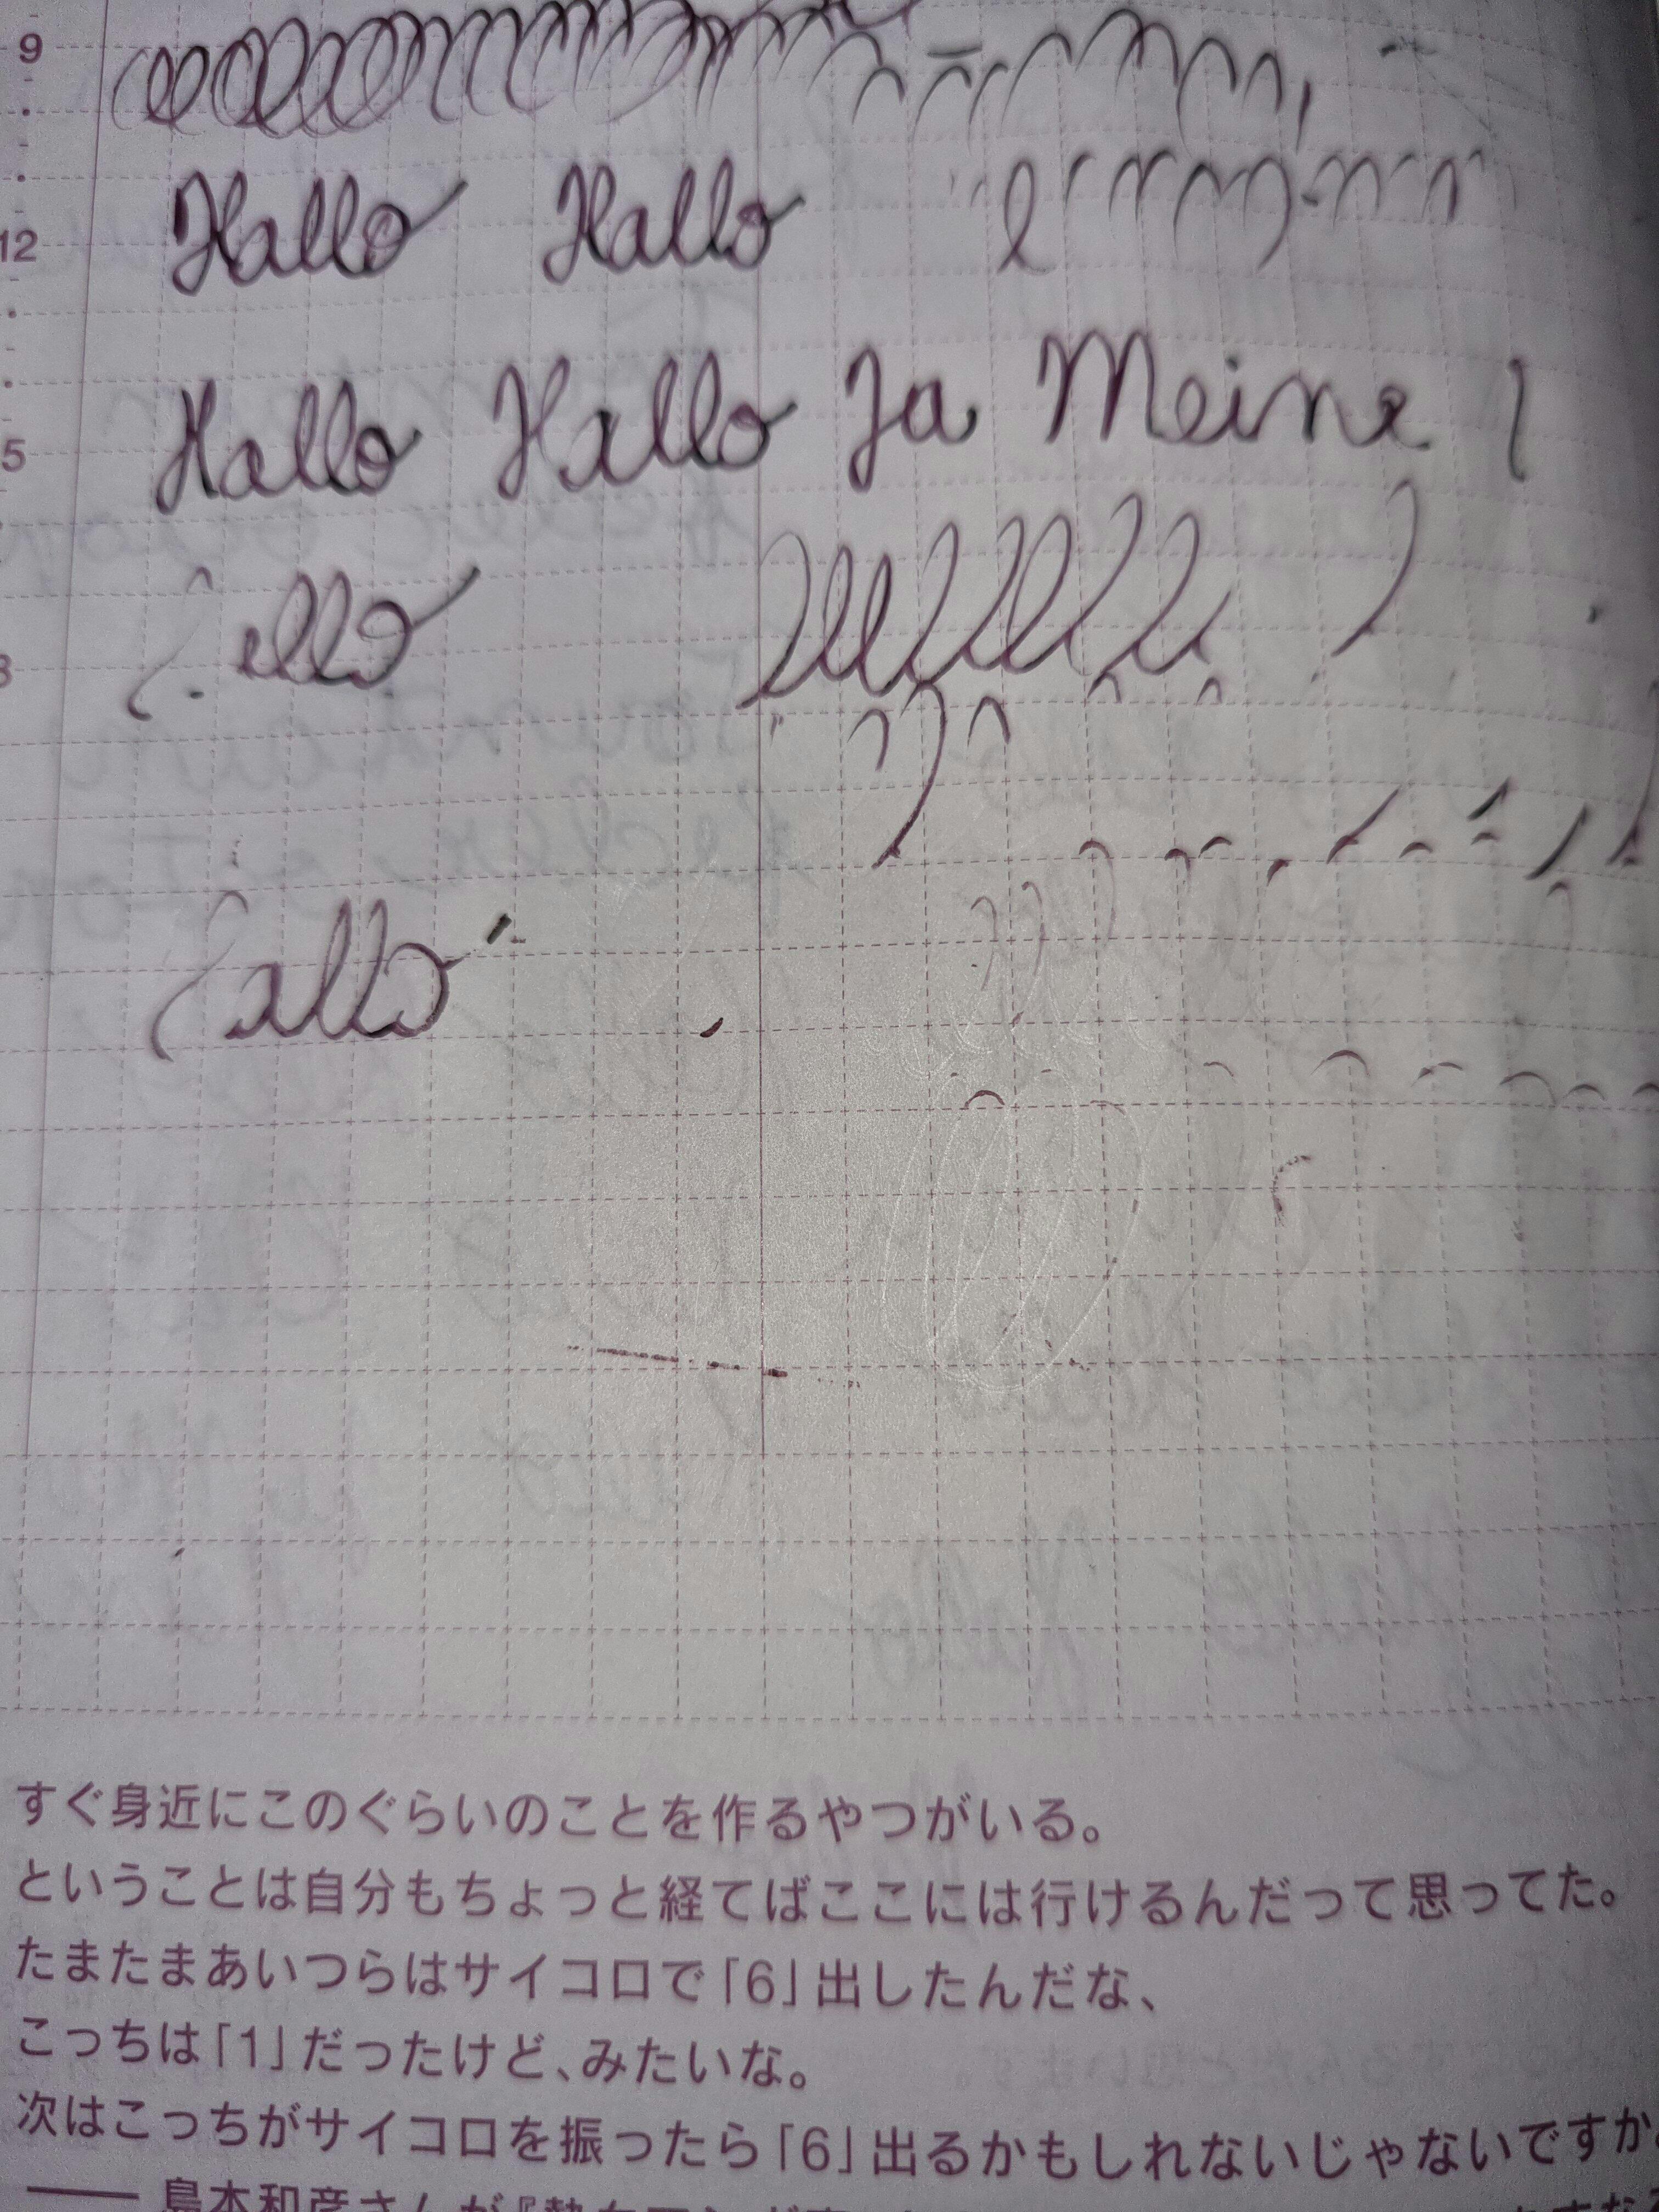 9
12 Hallo Hallo
15 Hallo Hallo Ja Meine
ello
allo
すぐ身近にこのぐらいのことを作るやつがいる。
ということは自分もちょっと経てばここには行けるんだって思ってた。
たまたまあいつらはサイコロで「6」出したんだな、
こっちは「1」だったけど、みたいな。
次はこっちがサイコロを振ったら「6」出るかもしれないじゃないですか。
—— 島本和彦さんが『